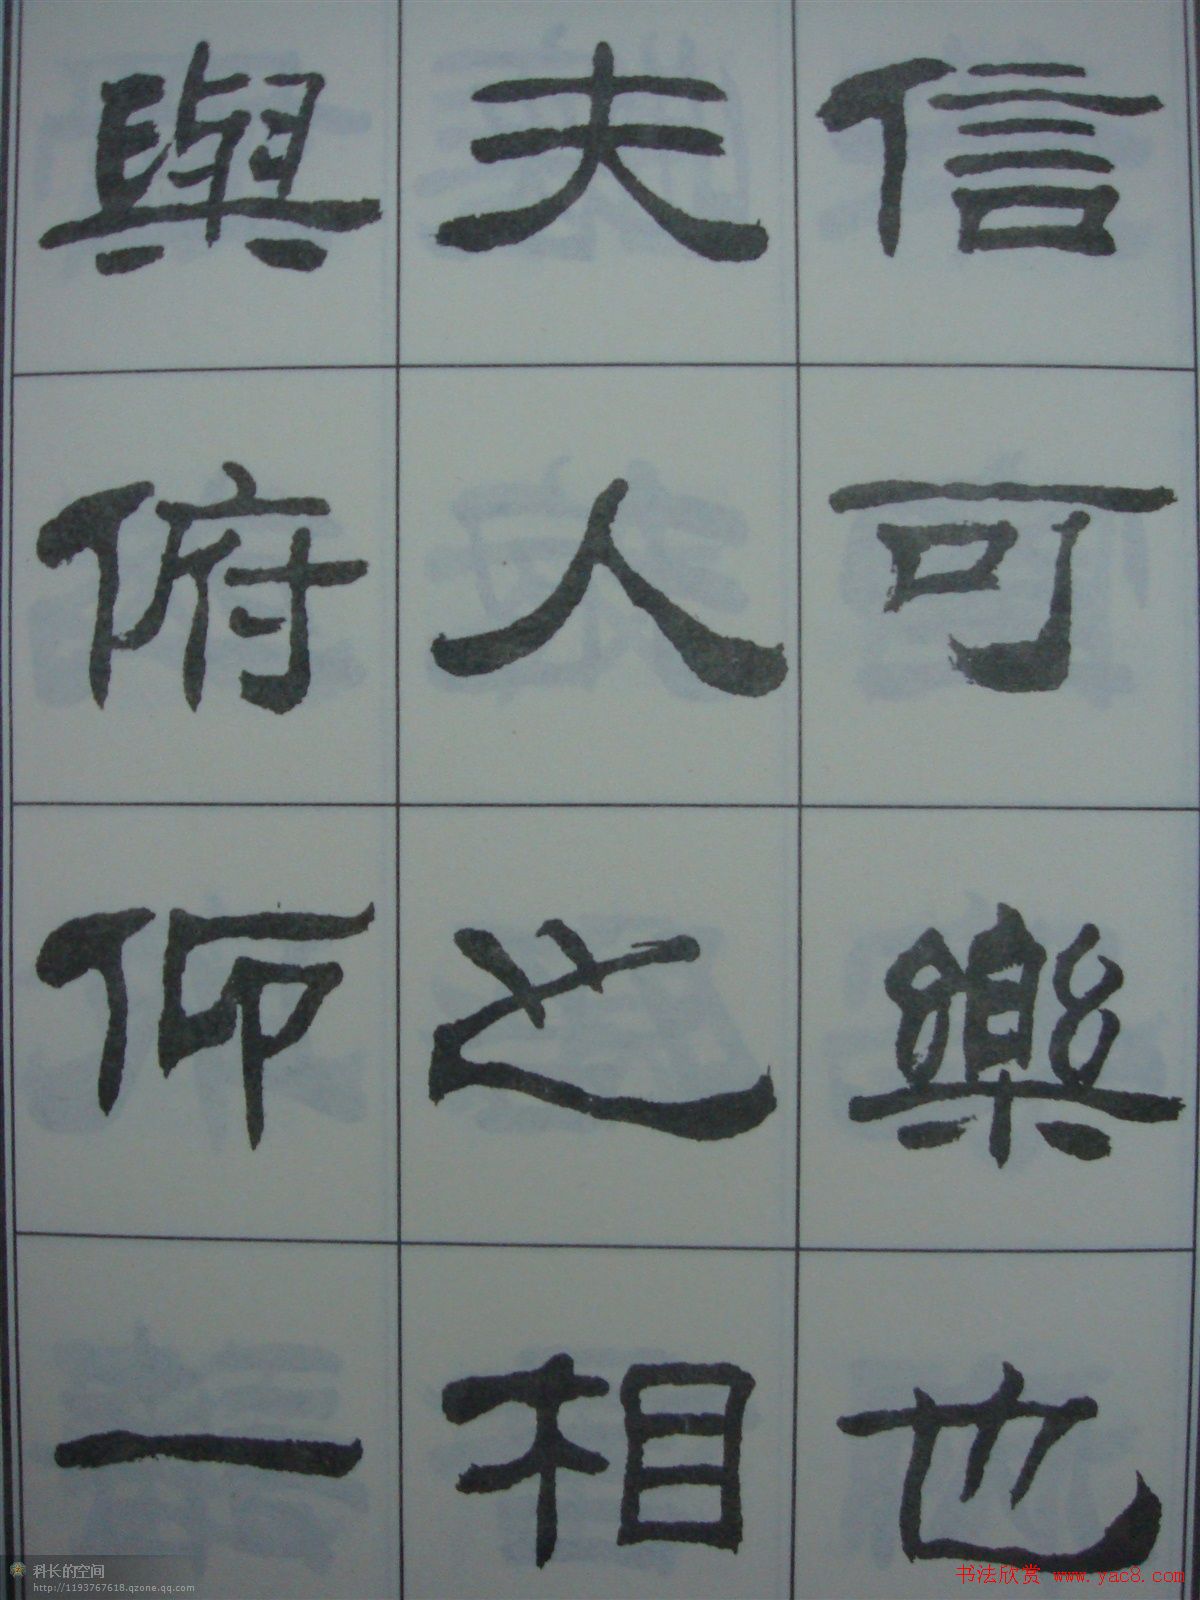 信可樂也
夫人之相
與俯仰一
科长的空间
http://1193767618.qzone.qq.com
书法欣赏 www.yac8.com